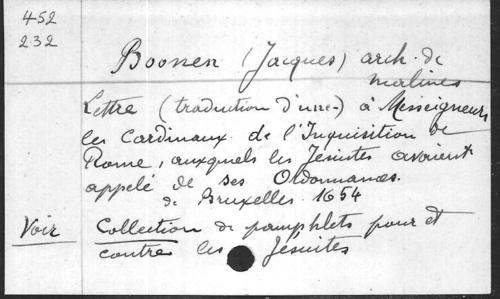 452
232
Boonen (Jacques) arch. de
malines
Lettre (traduction d'une) à Messeigneurs
les Cardinaux de l'Inquisition de
Rome, auxquels les Jésuites avaient
appelé de ses Ordonnances.
de Bruxelles 1654
Voir Collection de pamphlets pour et
contre les Jésuites